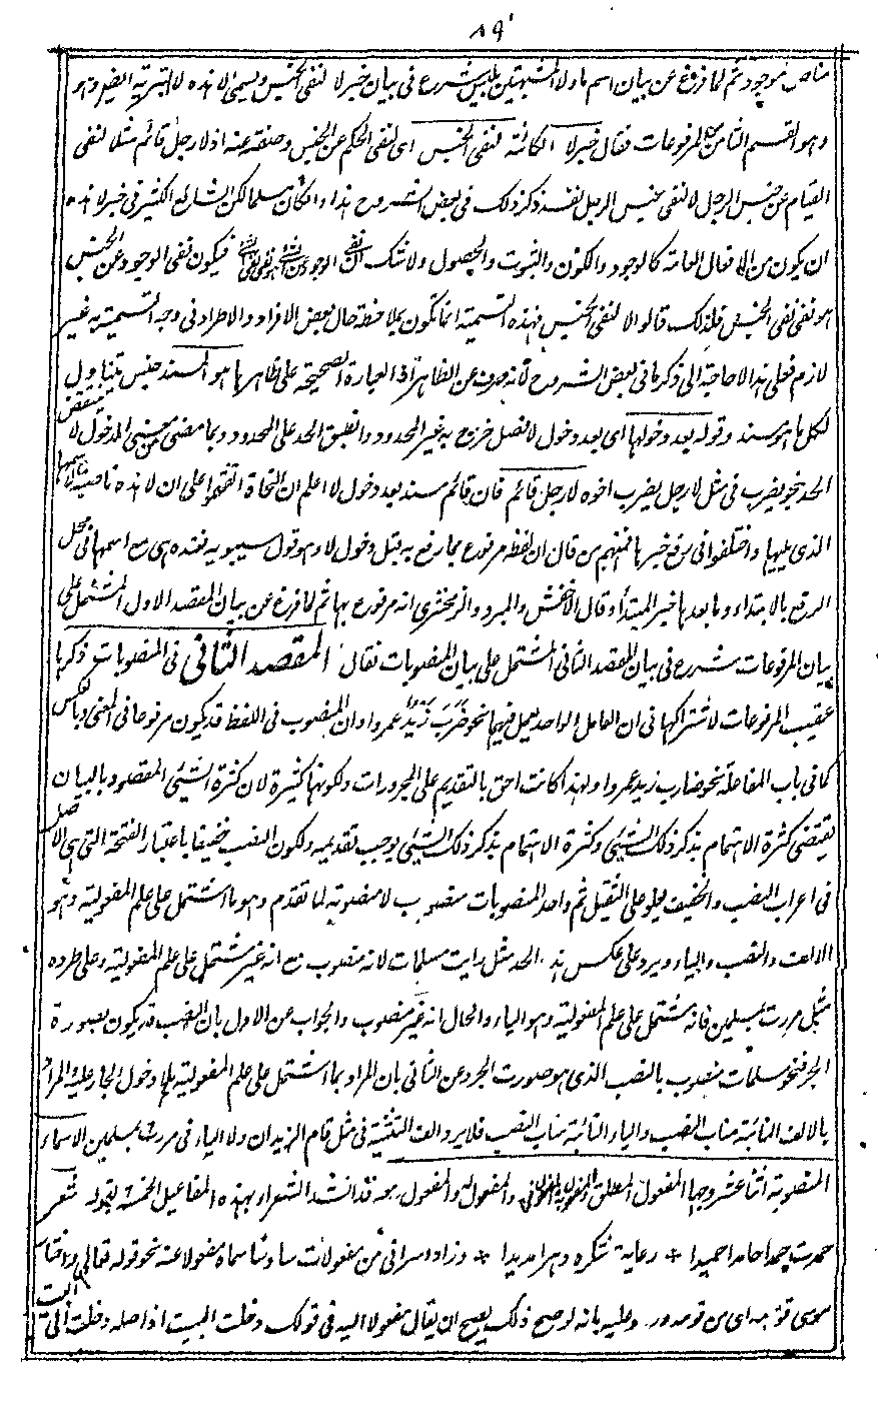 ٨٩
مناص موجود ثم لما فرغ عن بيان اسم ما ولا المشبهتين بليس شرع فى بيان خبر لا لنفى الجنس ويسمى لا هذه لا التبرية ايضا وهو
وهو القسم الثامن من المرفوعات فقال خبر لا الكائنة لنفى الجنس اى لنفى الحكم عن الجنس وصفة عنه اذ لا رجل قائم مثلا لنفى
القيام عن جنس الرجل لا لنفى جنس الرجل نفسه ذكر ذلك فى بعض الشروح هذا وان كان مسلما لكن الشائع الكثير فى خبر لا هذه
ان يكون من الافعال العامة كالوجود والكون والثبوت والحصول ولا شك ان نفى الوجود عن الشئ هو نفى الشئ فيكون نفى الوجود عن الجنس
هو نفى نفس الجنس فلذلك قالوا لا لنفى الجنس فهذه التسمية انما تكون بملاحظة حال بعض الافراد والاطراد فى وجه التسمية غير
لازم فعلى هذا لا حاجة الى ذكر ما فى بعض الشروح لانه صرف عن الظاهر اذ العبارة الصحيحة على ظاهرها هو المسند جنس يتناول
لكل ما هو مسند وقوله بعد دخولها اى بعد دخول لا فصل خرج به غير المحدود وانطبق الحد على المحدود وبما مضى من معنى الدخول لا ينتقض
الحد بنحو يضرب فى مثل لا رجل يضرب اخوه لا رجل قائم فان قائم مسند بعد دخول لا اعلم ان النحاة اتفقوا على ان لا هذه ناصبة لاسمها
الذى يليها واختلفوا فى رفع خبرها فمنهم من قال ان لفظ مرفوع بما رفع به قبل دخول لا وهو قول سيبويه فعنده هى مع اسمها فى محل
الرفع بالابتداء وما بعدها خبر المبتدأ وقال الأخفش والمبرد والزمخشرى انه مرفوع بها ثم لما فرغ عن بيان المقصد الاول المشتمل على
بيان المرفوعات شرع فى بيان المقصد الثانى المشتمل على بيان المنصوبات فقال المقصد الثانى فى المنصوبات ذكرها
عقيب المرفوعات لاشتراكها فى ان العامل الواحد يعمل فيهما نحو ضرب زيد عمروا وان المنصوب فى اللفظ قد يكون مرفوعا فى المعنى وبالعكس
كما فى باب المفاعلة نحو ضارب زيد عمروا ولهذا كانت احق بالتقديم على المجرورات ولكونها كثيرة لان كثرة الشئ المقصود بالبيان
يقتضى كثرة الاهتمام بذكر ذلك الشئ وكثرة الاهتمام بذكر ذلك الشئ يوجب تقديمه ولكون النصب خفيفا باعتبار الفتحة التى هى الاصل
فى اعراب النصب والخفيف يعلو على الثقيل ثم واحد المنصوبات منصوب لا منصوبة لما تقدم وهو ما اشتمل على علم المفعولية وهو
الالف والنصب والياء ويرد على عكس هذا الحد مثل رايت مسلمات لانه منصوب مع انه غير مشتمل على علم المفعولية وعلى طرده
مثل مررت بمسلمين فانه مشتمل على علم المفعولية وهو الياء والحال انه غير منصوب والجواب عن الاول بان النصب قد يكون بصورة
الجر فنحو مسلمات منصوب بالنصب الذى هو صورت الجر وعن الثانى بان المراد بما اشتمل على علم المفعولية بلا دخول الجار عليه المراد
بالالف النائبة مناب النصب والياء النائبة مناب النصب فلا يرد الف التثنية فى مثل قام الزيدان ولا الياء فى مررت بمسلمين الاسماء
المنصوبة اثنا عشر وجها المفعول المطلق والمفعول به والمفعول فيه والمفعول له والمفعول معه وقد انشد الشعراء بهذه المفاعيل الخمسة بقوله شعر
حمدت حمدا حامدا حميدا * رعاية شكره دهرا مديدا * وزاد السيرافى من مفعولات سادسا سماه مفعولا عنه نحو قوله تعالى واختار
موسى قومه اى من قومه ورد عليه بانه لو صح ذلك يصح ان يقال مفعولا اليه فى قولك دخلت البيت اذ اصله دخلت الى البيت